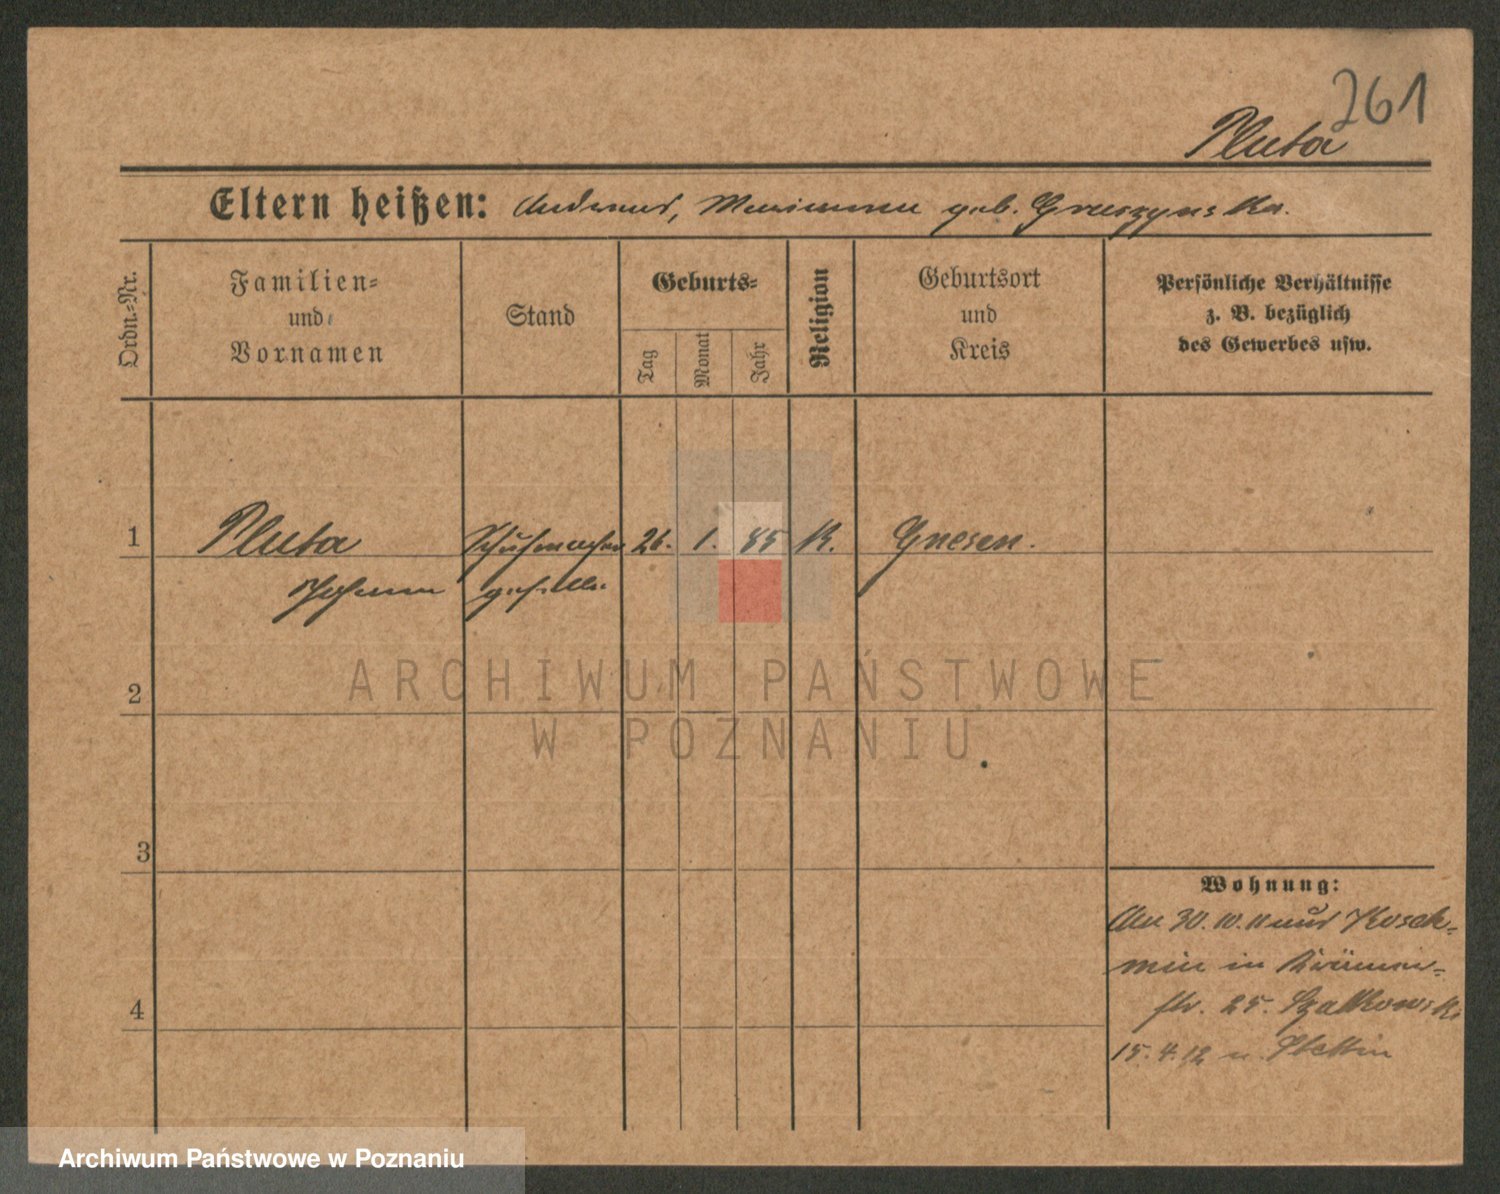 261
Pluta
Eltern heißen: Andreas, Marianna geb. Gruszynska.
Ordn.-Nr.
Familien-
und
Vornamen
Stand
Geburts-
Tag
Monat
Jahr
Religion
Geburtsort
und
Kreis
Persönliche Verhältnisse
z. B. bezüglich
des Gewerbes usw.
1 Pluta Schuhmacher 26. 1. 85 K. Gnesen.
Johann geselle
2
3
4
Wohnung:
An 30. 10. 11 aus Kosch-
min in
str. 25. Szalkowski
15. 4. 12 n. Stettin
ARCHIWUM PAŃSTWOWE
W POZNANIU
Archiwum Państwowe w Poznaniu